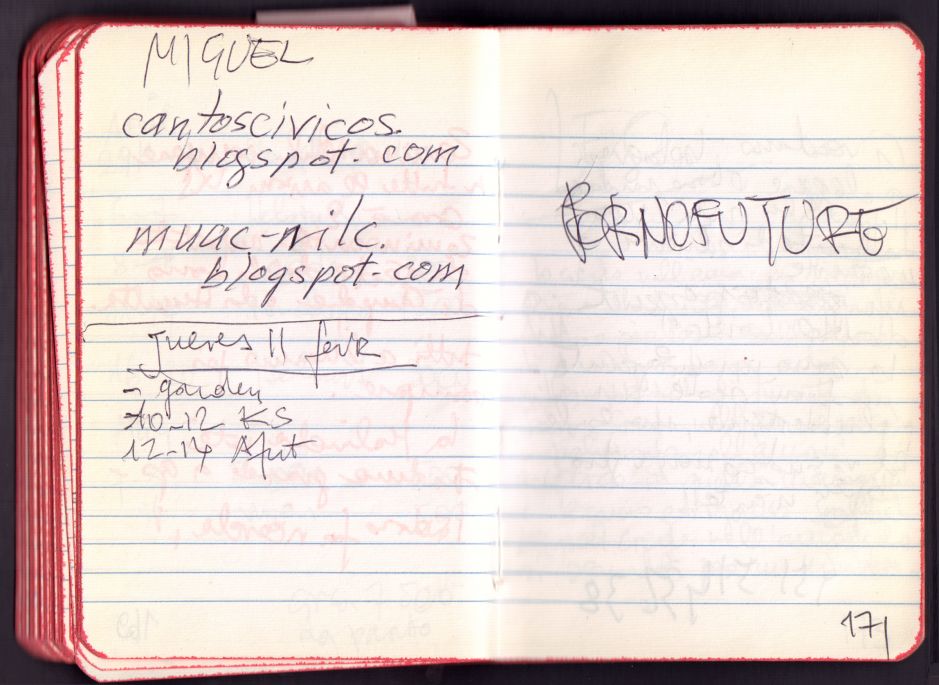 MIGUEL
cantoscivicos.
blogspot.com
muac-nilc.
blogspot.com
Jueves 11 fevr
- garden
10-12 KS
12-14
PORNOFUTURE
171